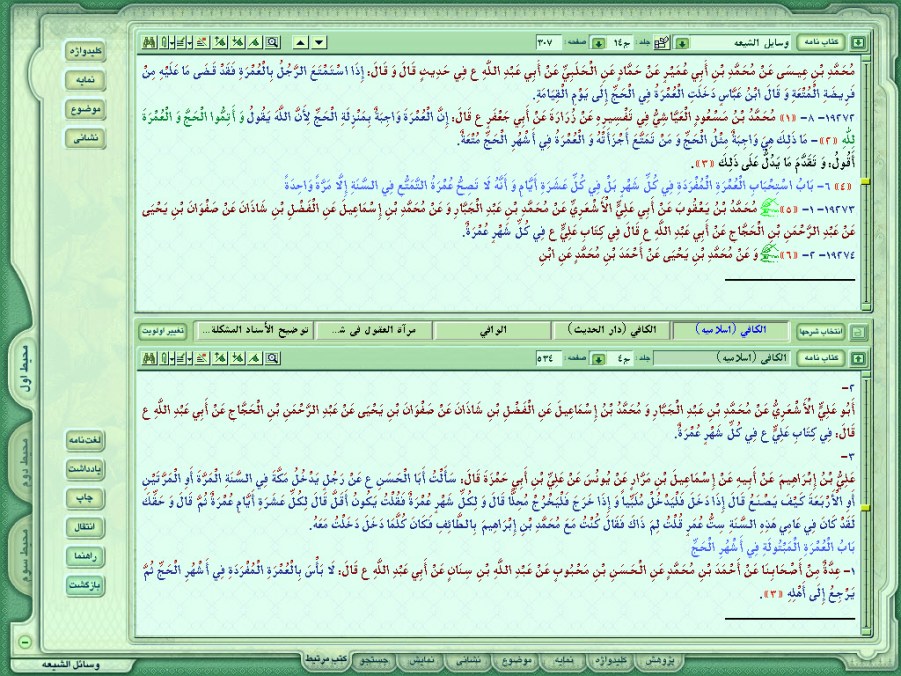 کتاب نامه
وسایل الشیعه
جلد :
ج ١٤
صفحه :
٣٠٧
مُحَمَّدِ بْنِ عِيسَى عَنْ مُحَمَّدِ بْنِ أَبِي عُمَيْرٍ عَنْ حَمَّادٍ عَنِ الْحَلَبِيِّ عَنْ أَبِي عَبْدِ اللَّهِ ع فِي حَدِيثٍ قَالَ وَ قَالَ: إِذَا اسْتَمْتَعَ الرَّجُلُ بِالْعُمْرَةِ فَقَدْ قَضَى مَا عَلَيْهِ مِنْ
فَرِيضَةِ الْمُتْعَةِ وَ قَالَ ابْنُ عَبَّاسٍ دَخَلَتِ الْعُمْرَةُ فِي الْحَجِّ إِلَى يَوْمِ الْقِيَامَةِ.
١٩٢٧٢- ٨- «١» مُحَمَّدُ بْنُ مَسْعُودٍ الْعَيَّاشِيُّ فِي تَفْسِيرِهِ عَنْ زُرَارَةَ عَنْ أَبِي جَعْفَرٍ ع قَالَ: إِنَّ الْعُمْرَةَ وَاجِبَةٌ بِمَنْزِلَةِ الْحَجِّ لِأَنَّ اللَّهَ يَقُولُ وَ أَتِمُّوا الْحَجَّ وَ الْعُمْرَةَ
لِلَّهِ «٢»- مَا ذَلِكَ هِيَ وَاجِبَةٌ مِثْلُ الْحَجِّ وَ مَنْ تَمَتَّعَ أَجْزَأَتْهُ وَ الْعُمْرَةُ فِي أَشْهُرِ الْحَجِّ مُتْعَةٌ.
أَقُولُ: وَ تَقَدَّمَ مَا يَدُلُّ عَلَى ذَلِكَ «٣».
«٤» ٦- بَابُ اسْتِحْبَابِ الْعُمْرَةِ الْمُفْرَدَةِ فِي كُلِّ شَهْرٍ بَلْ فِي كُلِّ عَشَرَةِ أَيَّامٍ وَ أَنَّهُ لَا تَصِحُّ عُمْرَةُ التَّمَتُّعِ فِي السَّنَةِ إِلَّا مَرَّةً وَاحِدَةً
١٩٢٧٣- ١- «٥» مُحَمَّدُ بْنُ يَعْقُوبَ عَنْ أَبِي عَلِيٍّ الْأَشْعَرِيِّ عَنْ مُحَمَّدِ بْنِ عَبْدِ الْجَبَّارِ وَ عَنْ مُحَمَّدِ بْنِ إِسْمَاعِيلَ عَنِ الْفَضْلِ بْنِ شَاذَانَ عَنْ صَفْوَانَ بْنِ يَحْيَى
عَنْ عَبْدِ الرَّحْمَنِ بْنِ الْحَجَّاجِ عَنْ أَبِي عَبْدِ اللَّهِ ع قَالَ فِي كِتَابِ عَلِيٍّ ع فِي كُلِّ شَهْرٍ عُمْرَةٌ.
١٩٢٧٤- ٢- «٦» وَ عَنْ مُحَمَّدِ بْنِ يَحْيَى عَنْ أَحْمَدَ بْنِ مُحَمَّدٍ عَنِ ابْنِ
انتخاب شرحها
الکافی (اسلامیه)
الکافی (دار الحدیث)
الوافی
مرآة العقول فی شـ...
توضیح الأسناد المشکلة...
تغییر اولویت
کتاب نامه
الکافی (اسلامیه)
جلد :
ج ٤
صفحه :
٥٣٤
٢-
أَبُو عَلِيٍّ الْأَشْعَرِيُّ عَنْ مُحَمَّدِ بْنِ عَبْدِ الْجَبَّارِ وَ مُحَمَّدُ بْنُ إِسْمَاعِيلَ عَنِ الْفَضْلِ بْنِ شَاذَانَ عَنْ صَفْوَانَ بْنِ يَحْيَى عَنْ عَبْدِ الرَّحْمَنِ بْنِ الْحَجَّاجِ عَنْ أَبِي عَبْدِ اللَّهِ ع
قَالَ: فِي كِتَابِ عَلِيٍّ ع فِي كُلِّ شَهْرٍ عُمْرَةٌ.
٣-
عَلِيُّ بْنُ إِبْرَاهِيمَ عَنْ أَبِيهِ عَنْ إِسْمَاعِيلَ بْنِ مَرَّارٍ عَنْ يُونُسَ عَنْ عَلِيِّ بْنِ أَبِي حَمْزَةَ قَالَ: سَأَلْتُ أَبَا الْحَسَنِ ع عَنْ رَجُلٍ يَدْخُلُ مَكَّةَ فِي السَّنَةِ الْمَرَّةَ أَوِ الْمَرَّتَيْنِ
أَوِ الْأَرْبَعَةَ كَيْفَ يَصْنَعُ قَالَ إِذَا دَخَلَ فَلْيَدْخُلْ مُلَبِّياً وَ إِذَا خَرَجَ فَلْيَخْرُجْ مُحِلًّا قَالَ وَ لِكُلِّ شَهْرٍ عُمْرَةٌ فَقُلْتُ يَكُونُ أَقَلَّ قَالَ لِكُلِّ عَشَرَةِ أَيَّامٍ عُمْرَةٌ ثُمَّ قَالَ وَ حَقِّكَ
لَقَدْ كَانَ فِي عَامِي هَذِهِ السَّنَةِ سِتُّ عُمَرٍ قُلْتُ لِمَ ذَاكَ فَقَالَ كُنْتُ مَعَ مُحَمَّدِ بْنِ إِبْرَاهِيمَ بِالطَّائِفِ فَكَانَ كُلَّمَا دَخَلَ دَخَلْتُ مَعَهُ.
بَابُ الْعُمْرَةِ الْمَبْتُولَةِ فِي أَشْهُرِ الْحَجِّ
١- عِدَّةٌ مِنْ أَصْحَابِنَا عَنْ أَحْمَدَ بْنِ مُحَمَّدٍ عَنِ الْحَسَنِ بْنِ مَحْبُوبٍ عَنْ عَبْدِ اللَّهِ بْنِ سِنَانٍ عَنْ أَبِي عَبْدِ اللَّهِ ع قَالَ: لَا بَأْسَ بِالْعُمْرَةِ الْمُفْرَدَةِ فِي أَشْهُرِ الْحَجِّ ثُمَّ
يَرْجِعُ إِلَى أَهْلِهِ «٣».
کلیدواژه
نمایه
موضوع
نشانی
لغت‌نامه
یادداشت
چاپ
انتقال
راهنما
بازگشت
محیط اول
محیط دوم
محیط سوم
پژوهش
کلیدواژه
نمایه
موضوع
نشانی
نمایش
جستجو
کتب مرتبط
وسائل الشیعه